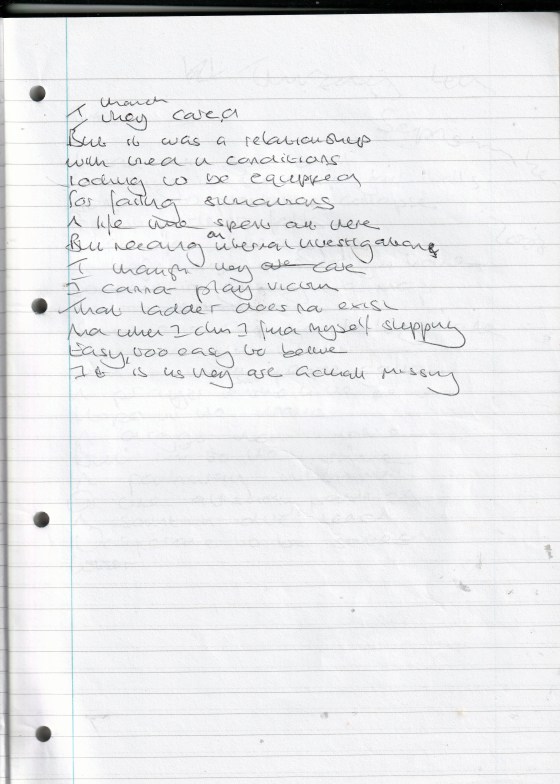 thought
I they cared
But it was a relationship
with tied in conditions
to be equipped
for facing situations
A life spent out there
But needing an internal investigations
I thought they are care
I cannot play victim
That ladder does not exist
when I I find myself slipping
Easy, too easy to believe
It is us they are actually missing